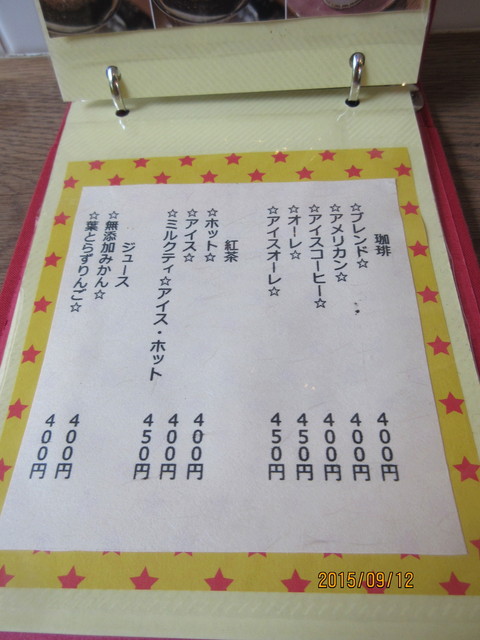 珈琲
☆ブレンド☆ ４００円
☆アメリカン☆ ４００円
☆アイスコーヒー☆ ４００円
☆オーレ☆ ４５０円
☆アイスオーレ☆ ４５０円
紅茶
☆ホット☆ ４００円
☆アイス☆ ４００円
☆ミルクティ☆アイス・ホット ４５０円
ジュース
☆無添加みかん☆ ４００円
☆葉とらずりんご☆ ４００円
2015/09/12